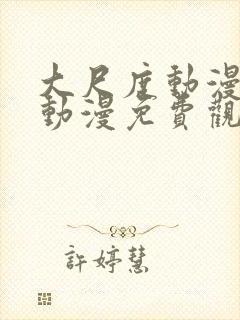 大尺度動漫
動漫免費觀
許婷慧